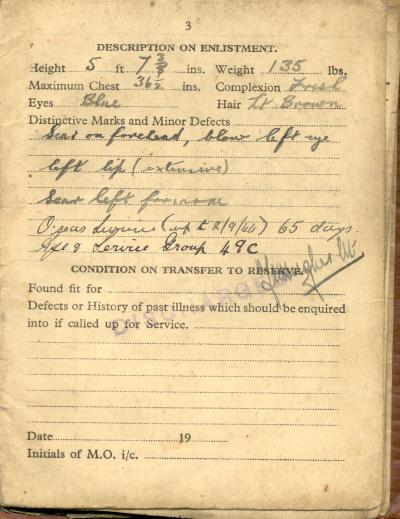 3
DESCRIPTION ON ENLISTMENT.
Height 5 ft 7 3/8 ins. Weight 135 lbs.
Maximum Chest 36½ ins. Complexion Fresh
Eyes Blue Hair Lt Brown
Distinctive Marks and Minor Defects
Scar on forehead, below left eye
left lip (extensive)
Scar left forearm
O'seas Service (up to 2/9/46) 65 days.
Age & Service Group 49C
CONDITION ON TRANSFER TO RESERVE.
Found fit for
Defects or History of past illness which should be enquired
into if called up for Service.
Date 19
Initials of M.O. i/c.